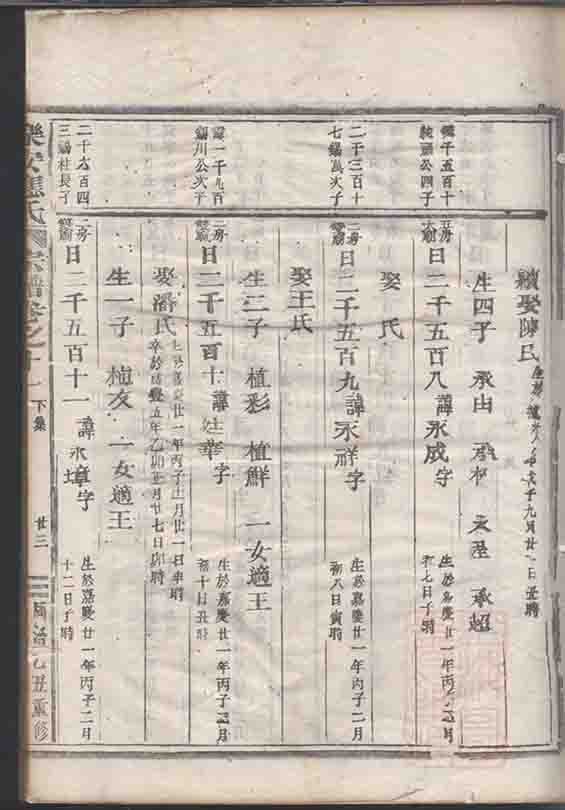 續娶陳氏
年九月廿一日丑時
生四子 承由 承超
純頭公四子
五房
日二千五百八諱永成字
生於嘉慶廿一年丙子二月
初七日子時
娶 氏
二千三百十
七錫萬次子
二房
日二千五百九諱永祥字
生於嘉慶廿一年丙子二月
初八日寅時
娶王氏
生二子 植彩 植鮮 一女適王
錫川公次子
二房
日二千五百十諱 華字
生於嘉慶廿一年丙子 月
初十日丑時
娶潘氏
生於嘉慶廿一年丙子 月廿一日 時
卒於咸豐五年乙卯正月廿七日 時
生一子 植友 一女適王
二千六百四
三錫桂長子
二房
日二千五百十一諱永璋字
生於嘉慶廿一年丙子二月
十二日子時
樂安 氏 宗譜卷之十一
下集
廿三
同治乙丑重修